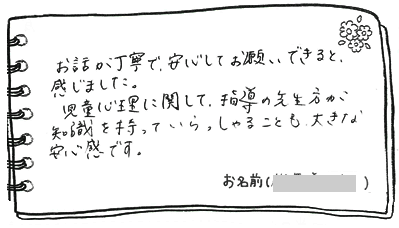 お話が丁寧で、安心してお願いできると、
感じました。
児童心理に関して、指導の先生方が
知識を持っていらっしゃることも、大きな
安心感です。
お名前( )